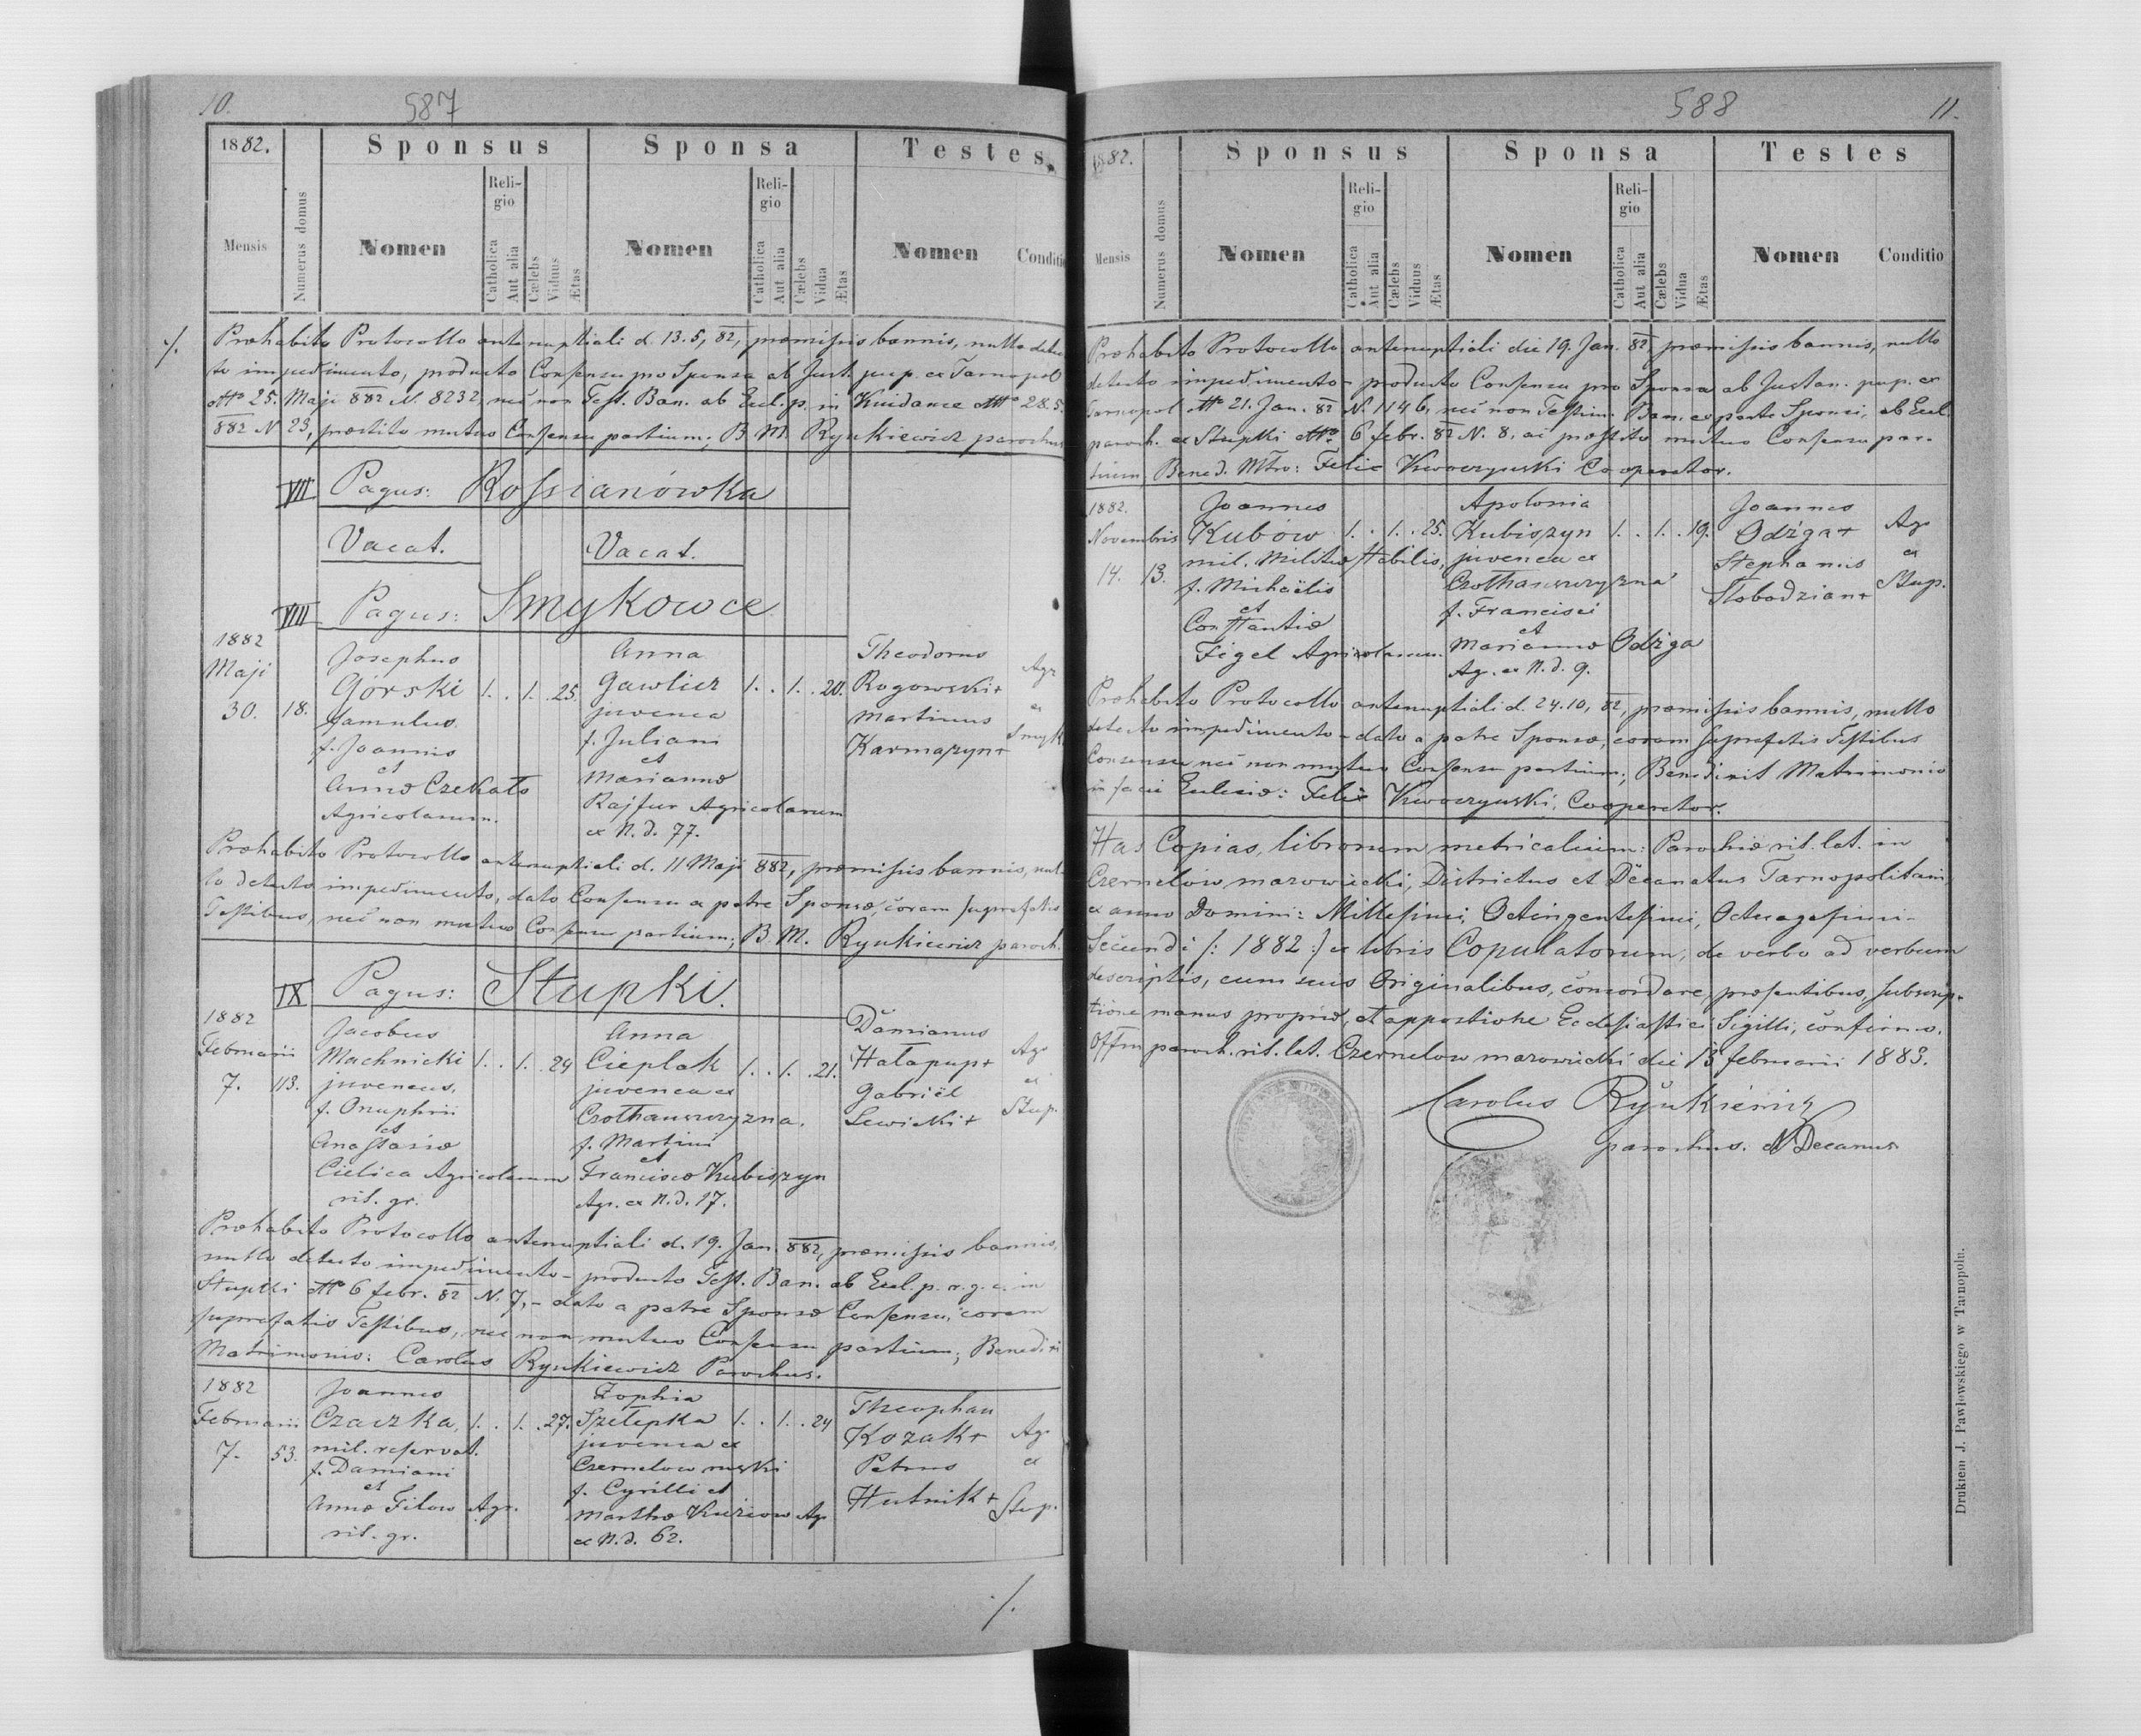 10.
587
1882.
Sponsus
Sponsa
Testes
Mensis
Numerus domus
Nomen
Religio
Catholica
Aut alia
Cælebs
Viduus
Ætas
Nomen
Religio
Catholica
Aut alia
Cælebs
Vidua
Ætas
Nomen
Conditio
Præhabito Protocollo antenuptiali d. 13. 5, 82, præmissis bannis, nullo detec
to impedimento, producto Consensu pro Sponsa ab Just. pup. ex Tarnopol
25. Maji 882 N. 8232, nec non Test. Ban. ab Eccl. p. in 28. 5.
882 N 23, præstito mutuo Consensu partium; B. M. Rynkiewicz parochus
VII Pagus: Rossianówka
Vacat. Vacat.
VIII Pagus: Smykowce
1882
Maji
30. 18.
Josephus
Górski 1. . 1. . 25.
famulus.
f. Joannis
et
Annæ Czekało
Agricolarum.
Anna
Gawlicz 1. . 1. . 20.
juvenca
f. Juliani
et
Mariannæ
Rajfur Agricolarum
ex N. d. 77.
Theodorus
Rogowski+
Martinus
Karmazyn+
Agr
ex
Smyk.
Præhabito Protocollo antenuptiali d. 11 Maji 882, præmissis bannis, nul-
lo detecto impedimento, dato Consensu a patre Sponsæ, coram suprafatis
Testibus, nec non mutuo Consensu partium; B. M. Rynkiewicz paroch.
IX Pagus: Stupki.
1882
Februarii
7. 113.
Jacobus
Machnicki 1. . 1. . 24
juvencus,
f. Onuphrii
et
Anastasiæ
Cielica Agricolarum
rit. gr.
Anna
Cieplak 1. . 1. . 21.
juvenca ex
f. Martini
et
Franciscæ Kubiszyn
Agr. ex N. d. 17.
Damianus
Hałapup+
Gabriël
Lewicki+
Agr
ex
Stup.
Præhabito Protocollo antenuptiali d. 19. Jan. 882, præmissis bannis,
nullo detecto impedimento - producto Test. Ban. ab Eccl. p. r. g. c. in
Stupki 6 febr. 82 N. 7, - dato a patre Sponsæ Consensu, coram
suprafatis Testibus, nec non mutuo Consensu partium; Benedixi
Matrimonio: Carolus Rynkiewicz Parochus.
1882
Februarii
7. 53.
Joannes
Czaczka, 1. . 1. . 27.
mil. reservat.
f. Damiani
et
Annæ Filow Agr.
rit. gr.
Zophia
Szełepka 1. . 1. . 24
juvenca ex
Czernelow ruski
f. Cyrilli et
Marthæ Agr
ex N. d. 62.
Theophan
Kozak+
Petrus
Hutnik+
Agr
ex
Stup.
./.
588
11.
1882.
Sponsus
Sponsa
Testes
Mensis
Numerus domus
Nomen
Religio
Catholica
Aut alia
Cælebs
Viduus
Ætas
Nomen
Religio
Catholica
Aut alia
Cælebs
Vidua
Ætas
Nomen
Conditio
Præhabito Protocollo antenuptiali die 19. Jan. 82, præmissis bannis, nullo
detecto impedimento - producto Consensu pro Sponsa ab Justan. pup. ex
Tarnopol 21. Jan. 82 N. 1146, nec non Testim. Ban. ex parte Sponsi, ab Eccl.
paroch. ex Stupki 6 febr. 82 N. 8, ac præstito mutuo Consensu par-
tium, Bened. Mtro: Felix Kwoczynski Cooperator.
1882.
Novembris
14. 13.
Joannes
Kubów 1. . 1. . 25.
mil. Militiæ stabilis,
f. Michaëlis
et
Constantiæ
Figel Agricolarum.
Apolonia
Kubiszyn 1. . 1. . 19.
juvenca ex
f. Francisci
et
Mariannæ Odżga
Ag. ex N. d. 9.
Joannes
Odżga+
Stephanus
Słobodzian+
Agr
ex
Stup.
Præhabito Protocollo antenuptiali d. 24. 10, 82, præmissis bannis, nullo
detecto impedimento - dato a patre Sponsæ, coram suprafatis Testibus
Consensu nec non mutuo Consensu partium; Benedixit Matrimonio
in facie Ecclesiæ: Felix Kwoczynski, Cooperator.
Has Copias, librorum metricalium: Parochiæ rit. lat. in
Czernelów mazowiecki, Districtus et Decanatus Tarnopolitani,
ex anno Domini: Millesimi, Octingentesimi, Octuagesimi-
Secundi /: 1882 :/ ex libris Copulatorum, de verbo ad verbum
descriptis, cum suis Originalibus, concordare, præsentibus, subscrip-
tione manus propriæ, et appositione Ecclesiastici Sigilli, confirmo.
Offm paroch. rit. lat. Czernelow mazowiecki die 15 februarii 1883.
Carolus Rynkiewicz
parochus.
Drukiem J. Pawłowskiego w Tarnopolu.